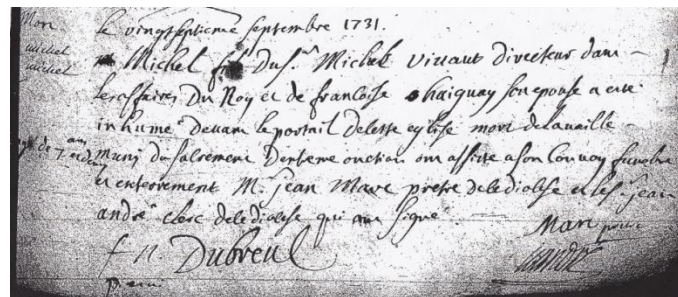 Mort
michel
michel
le vingtseptieme septembre 1731
Michel fils du Sr. Michel Vivant directeur dans
les affaires du Roy et de francoise haiquay son epouse a esté
inhumé devant le portail de cette eglise mort de la veille
agé de 7 ans
muni du sacrement d'extreme onction ont assisté a son convoy funebre
et enterrement Mr. jean Marc pretre de ce diocese et les jean
andré clerc de ce diocese qui ont signé
Marc pretre
f n. Dubreul